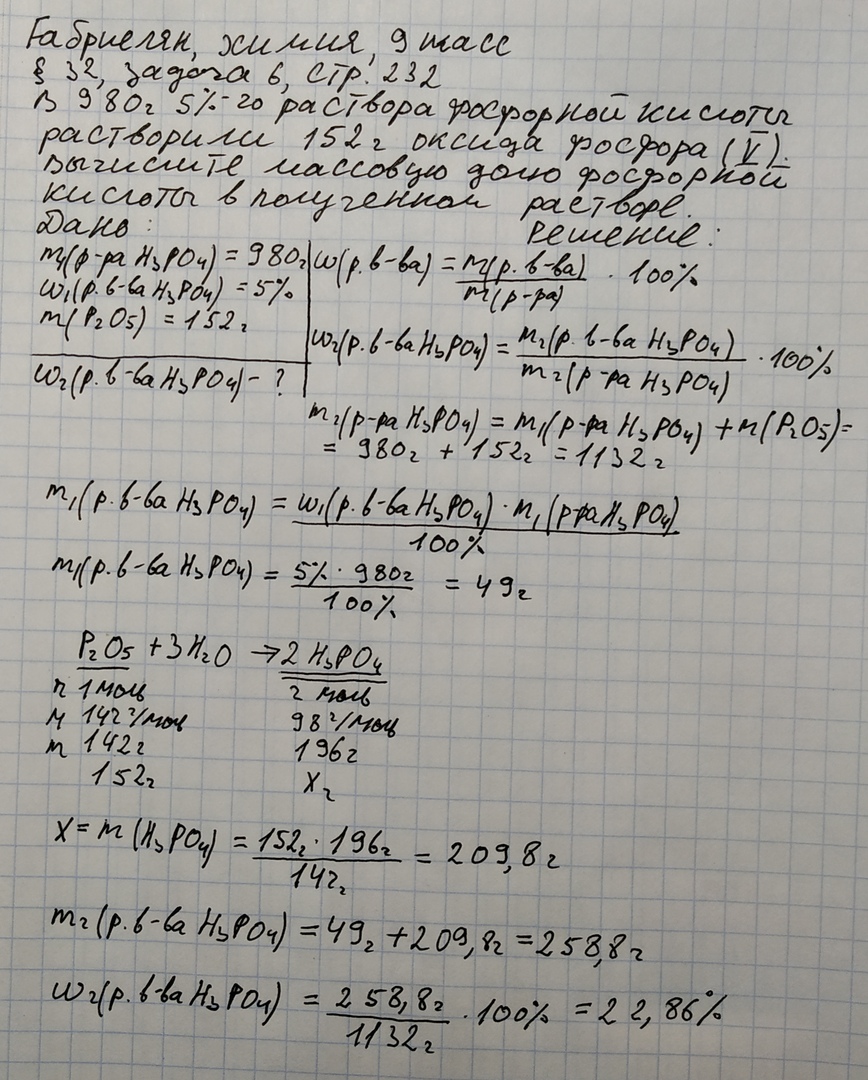 Габриелян, химия, 9 класс
§ 32, задача 6, стр. 232
В 980г 5%-го раствора фосфорной кислоты
растворили 152г оксида фосфора (V).
Вычислите массовую долю фосфорной
кислоты в полученном растворе.
Дано: Решение:
m₁(р-ра H₃PO₄) = 980г
w₁(р.в-ва H₃PO₄) = 5%
m(P₂O₅) = 152г
w₂(р.в-ва H₃PO₄) - ?
w(р.в-ва) = m(р.в-ва) / m(р-ра) · 100%
w₂(р.в-ва H₃PO₄) = m₂(р.в-ва H₃PO₄) / m₂(р-ра H₃PO₄) · 100%
m₂(р-ра H₃PO₄) = m₁(р-ра H₃PO₄) + m(P₂O₅) =
= 980г + 152г = 1132г
m₁(р.в-ва H₃PO₄) = w₁(р.в-ва H₃PO₄) · m₁(р-ра H₃PO₄) / 100%
m₁(р.в-ва H₃PO₄) = 5% · 980г / 100% = 49г
P₂O₅ + 3H₂O → 2H₃PO₄
n 1моль 2 моль
M 142г/моль 98г/моль
m 142г 196г
152г Xг
X = m(H₃PO₄) = 152г · 196г / 142г = 209,8г
m₂(р.в-ва H₃PO₄) = 49г + 209,8г = 258,8г
w₂(р.в-ва H₃PO₄) = 258,8г / 1132г · 100% = 22,86%